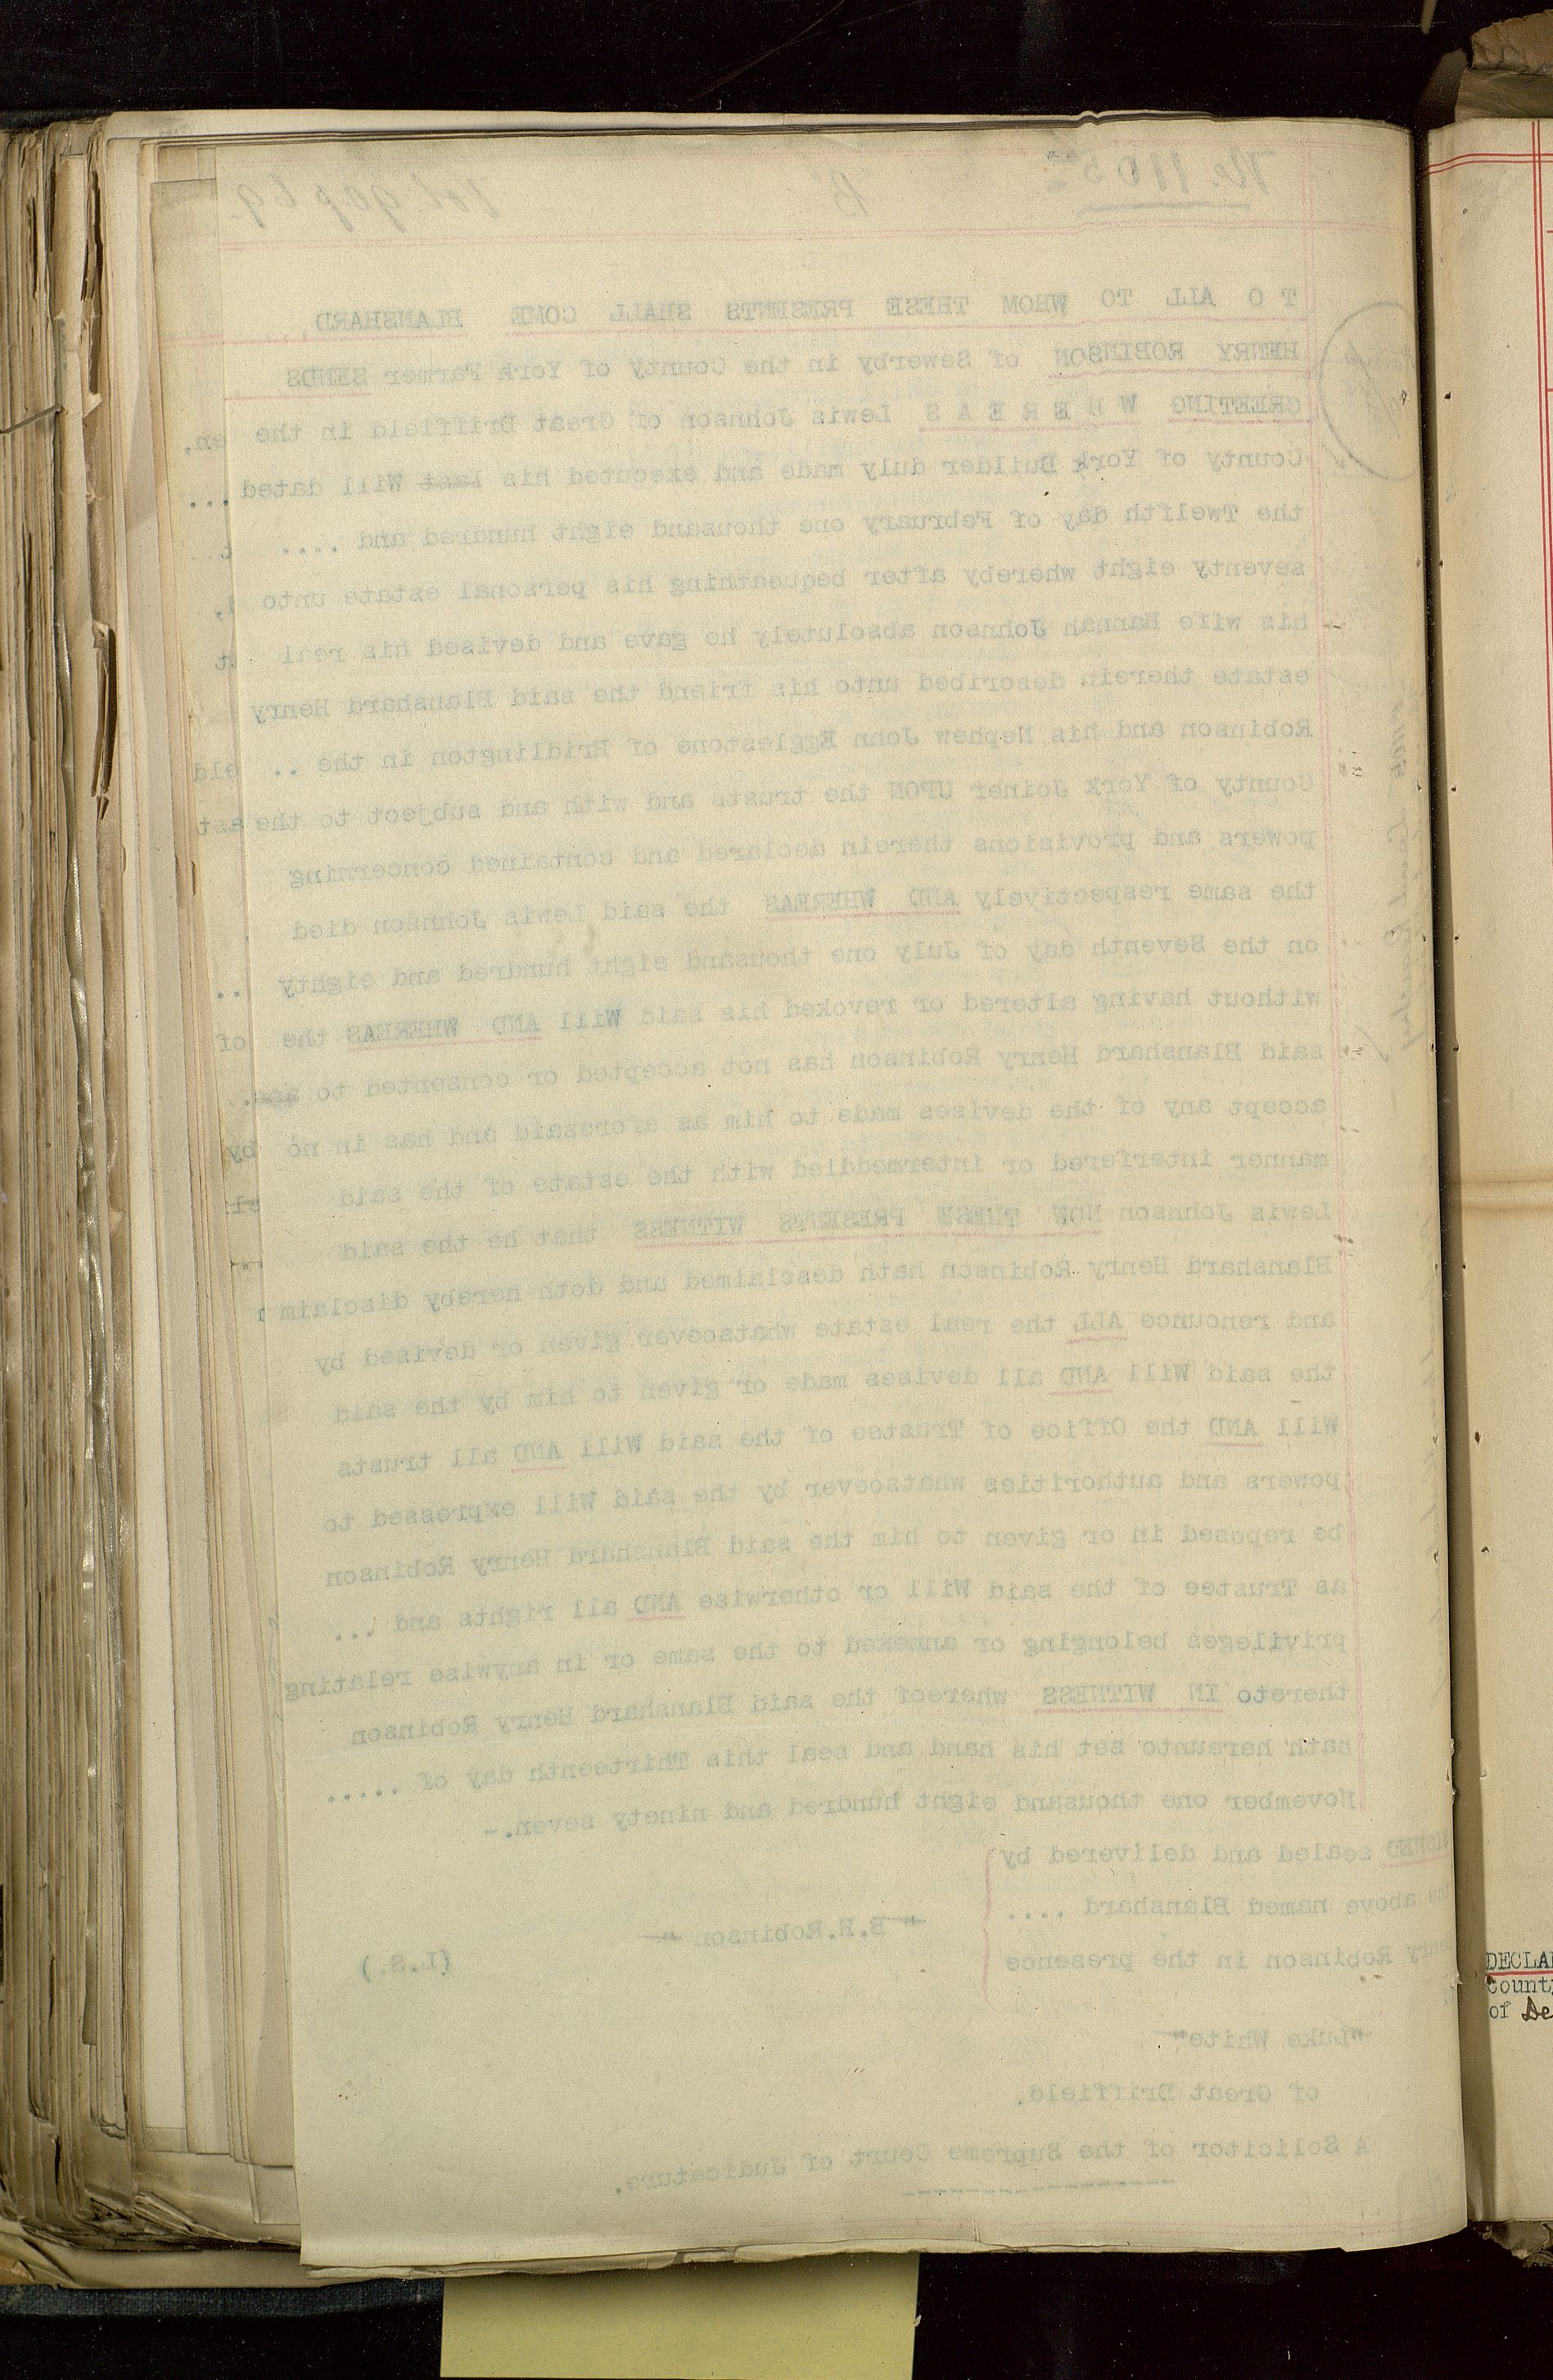 No. 1105
B
Vol 90 p 69
T O ALL TO WHOM THESE PRESENTS SHALL COME BLANSHARD,
HENRY ROBINSON of Sewerby in the County of York Farmer SENDS
GREETING W H E R E A S Lewis Johnson of Great Driffield in the
County of York Builder duly made and executed his last Will dated ...
the Twelfth day of February one thousand eight hundred and ....
seventy eight whereby after bequeathing his personal estate unto
his wife Hannah Johnson absolutely he gave and devised his real
estate therein described unto his friend the said Blanshard Henry
Robinson and his Nephew John Egglestone of Bridlington in the ..
County of York Joiner UPON the trusts and with and subject to the
powers and provisions therein declared and contained concerning
the same respectively AND WHEREAS the said Lewis Johnson died
on the Seventh day of July one thousand eight hundred and eighty ..
without having altered or revoked his said Will AND WHEREAS the
said Blanshard Henry Robinson has not accepted or consented to
accept any of the devises made to him as aforesaid and has in no
manner interfered or intermeddled with the estate of the said
Lewis Johnson NOW THESE PRESENTS WITNESS that he the said
Blanshard Henry Robinson hath desclaimed and doth hereby disclaim
and renounce ALL the real estate whatsoever given or devised by
the said Will AND all devises made or given to him by the said
Will AND the Office of Trustee of the said Will AND all trusts
powers and authorities whatsoever by the said Will expressed to
be reposed in or given to him the said Blanshard Henry Robinson
as Trustee of the said Will or otherwise AND all rights and ...
privileges belonging or annexed to the same or in anywise relating
thereto IN WITNESS whereof the said Blanshard Henry Robinson
hath hereunto set his hand and seal this Thirteenth day of .....
November one thousand eight hundred and ninety seven.-
SIGNED sealed and delivered by
the above named Blanshard ....
Henry Robinson in the presence
"B.H.Robinson"
(L.S.)
"Luke White"
of Great Driffield.
A Solicitor of the Supreme Court of Judicature.
DECLA
County
of De